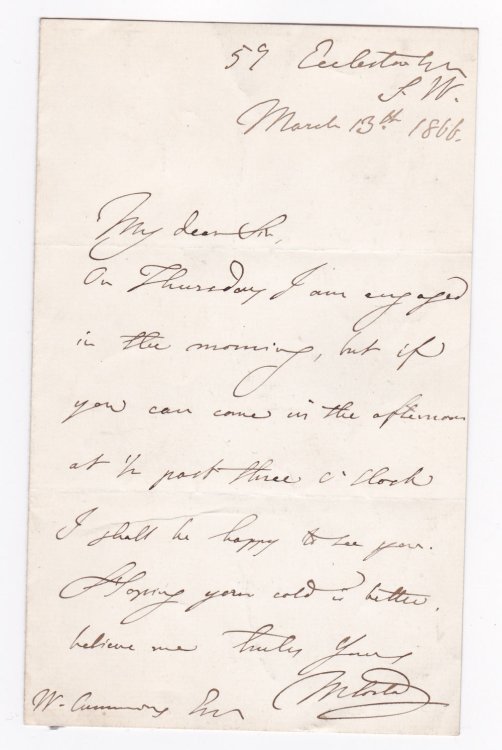 59 Eccleston Sqr
S. W.
March 13th 1866.
My dear Sir,
On Thursday I am engaged
in the morning, but if
you can come in the afternoon
at 1/2 past three o'clock
I shall be happy to see you.
Hoping your cold is better.
believe me truly yours
M Costa
W. Cummings Esqr